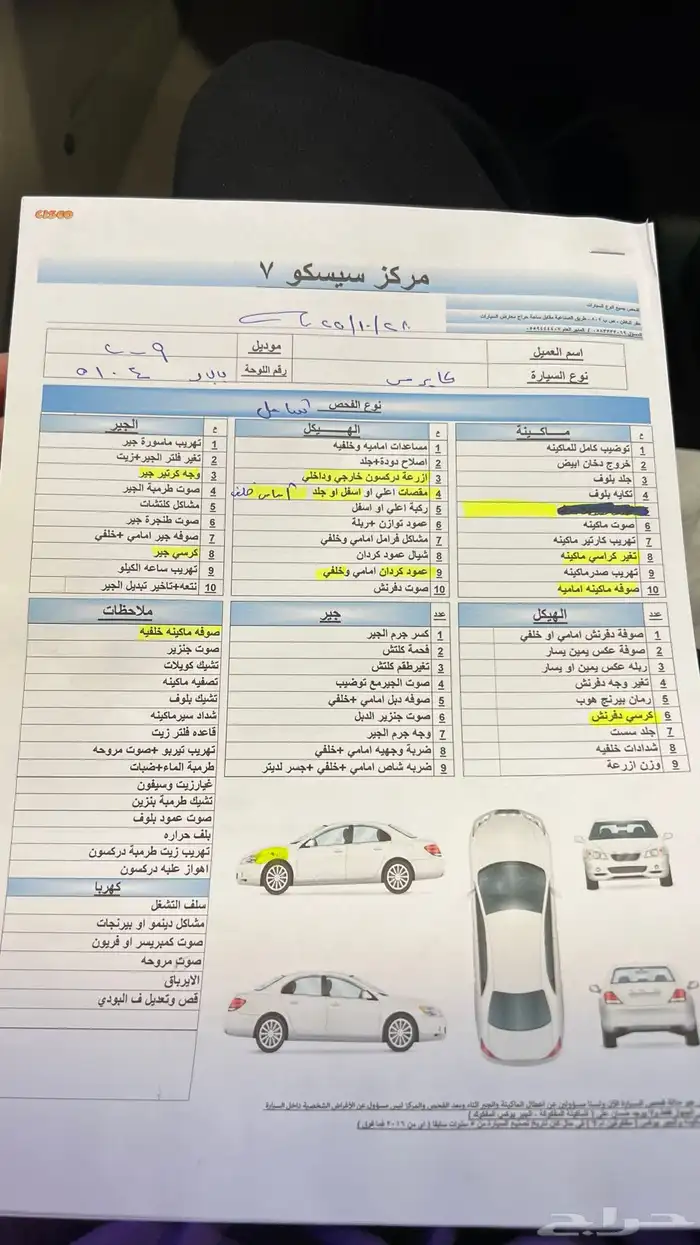 CISCO
مركز سيسكو ٧
لفحص جميع انواع السيارات
٢٠٢٥/١٠/٢٨
اسم العميل
موديل
٢٠٠٩
نوع السيارة
كابرس
رقم اللوحة
٥١٠٤
نوع الفحص
شامل
ماكـــينة
ع
1 توضيب كامل للماكينه
2 خروج دخان ابيض
3 جلد بلوف
4 تكايه بلوف
6 صوت ماكينه
7 تهريب كارتير ماكينه
8 تغير كراسي ماكينه
9 تهريب صدرماكينه
10 صوفه ماكينه اماميه
الهـــيكل
ع
1 مساعدات اماميه وخلفيه
2 اصلاح دودة+جلد
3 ازرعة دركسون خارجي وداخلي
4 مقصات اعلي او اسفل او جلد
5 ركبة اعلي او اسفل
6 عمود توازن +ربلة
7 مشاكل فرامل امامي وخلفي
8 شيال عمود كردان
9 عمود كردان امامي وخلفي
10 صوت دفرنش
الجير
ع
1 تهريب ماسورة جير
2 تغير فلتر الجير+زيت
3 وجه كرتير جير
4 صوت طرمبة الجير
5 مشاكل كلتشات
6 صوت طنجرة جير
7 صوفه جير امامي +خلفي
8 كرسي جير
9 تهريب ساعه الكيلو
10 نتعه+تاخير تبديل الجير
الهيكل
عدد
1 صوفة دفرنش امامي او خلفي
2 صوفة عكس يمين يسار
3 ربله عكس يمين او يسار
4 تغير وجه دفرنش
5 رمان بيرنج هوب
6 كرسي دفرنش
7 جلد سست
8 شدادات خلفيه
9 وزن ازرعة
جير
عدد
1 كسر جرم الجير
2 فحمة كلتش
3 تغيرطقم كلتش
4 صوت الجيرمع توضيب
5 صوفه دبل امامي +خلفي
6 صوت جنزير الدبل
7 وجه جرم الجير
8 ضربة وجهيه امامي +خلفي
9 ضربه شاص امامي +خلفي +جسر لديتر
ملاحظات
صوفه ماكينه خلفيه
صوت جنزير
تشيك كويلات
تصفيه ماكينه
تشيك بلوف
شداد سيرماكينه
قاعده فلتر زيت
تهريب تيربو +صوت مروحه
طرمبة الماء+ضبات
غيارزيت وسيفون
تشيك طرمبة بنزين
صوت عمود بلوف
بلف حراره
تهريب زيت طرمبة دركسون
اهواز علبه دركسون
كهربا
سلف التشغل
مشاكل دينمو او بيرنجات
صوت كمبريسر او فريون
صوت مروحه
الايرباق
قص وتعديل ف البودي
حراج